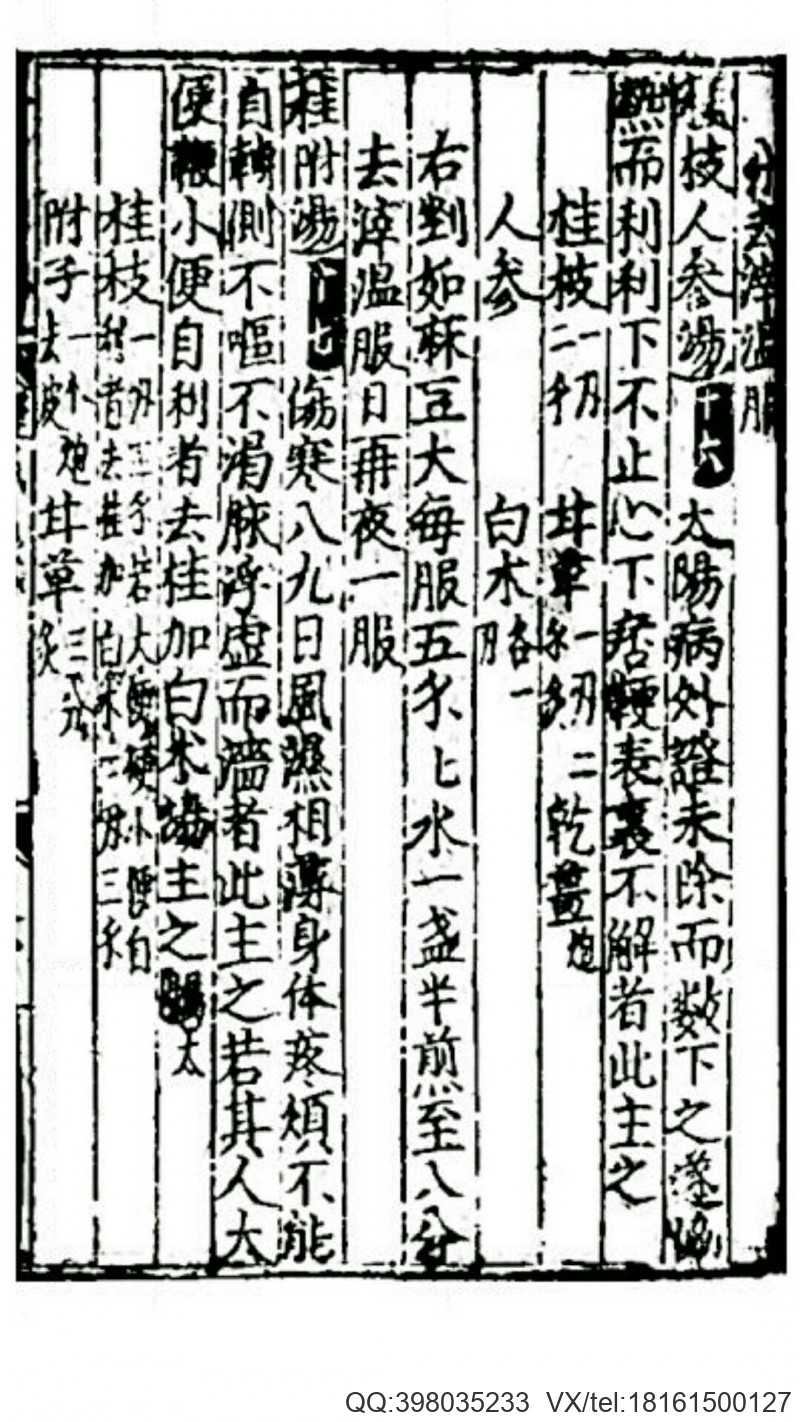 分去滓温服
桂枝人參湯十六 太陽病外證未除而数下之遂恊
熱而利利下不止心下痞鞕表裏不解者此主之
桂枝一两二分 甘草一两二分炙 乾薑炮
人参 白术各一两
右剉如麻豆大每服五分匕水一盏半煎至八分
去滓温服日再夜一服
桂附湯十七 傷寒八九日風濕相薄身体疼煩不能
自轉側不嘔不渴脉浮虚而濇者此主之若其人大
便鞕小便自利者去桂加白术湯主之
桂枝一两三分若大便硬小便自利者去桂加白术一两三分
附子去皮一个炮 甘草炙三分
QQ:398035233 VX/tel:18161500127